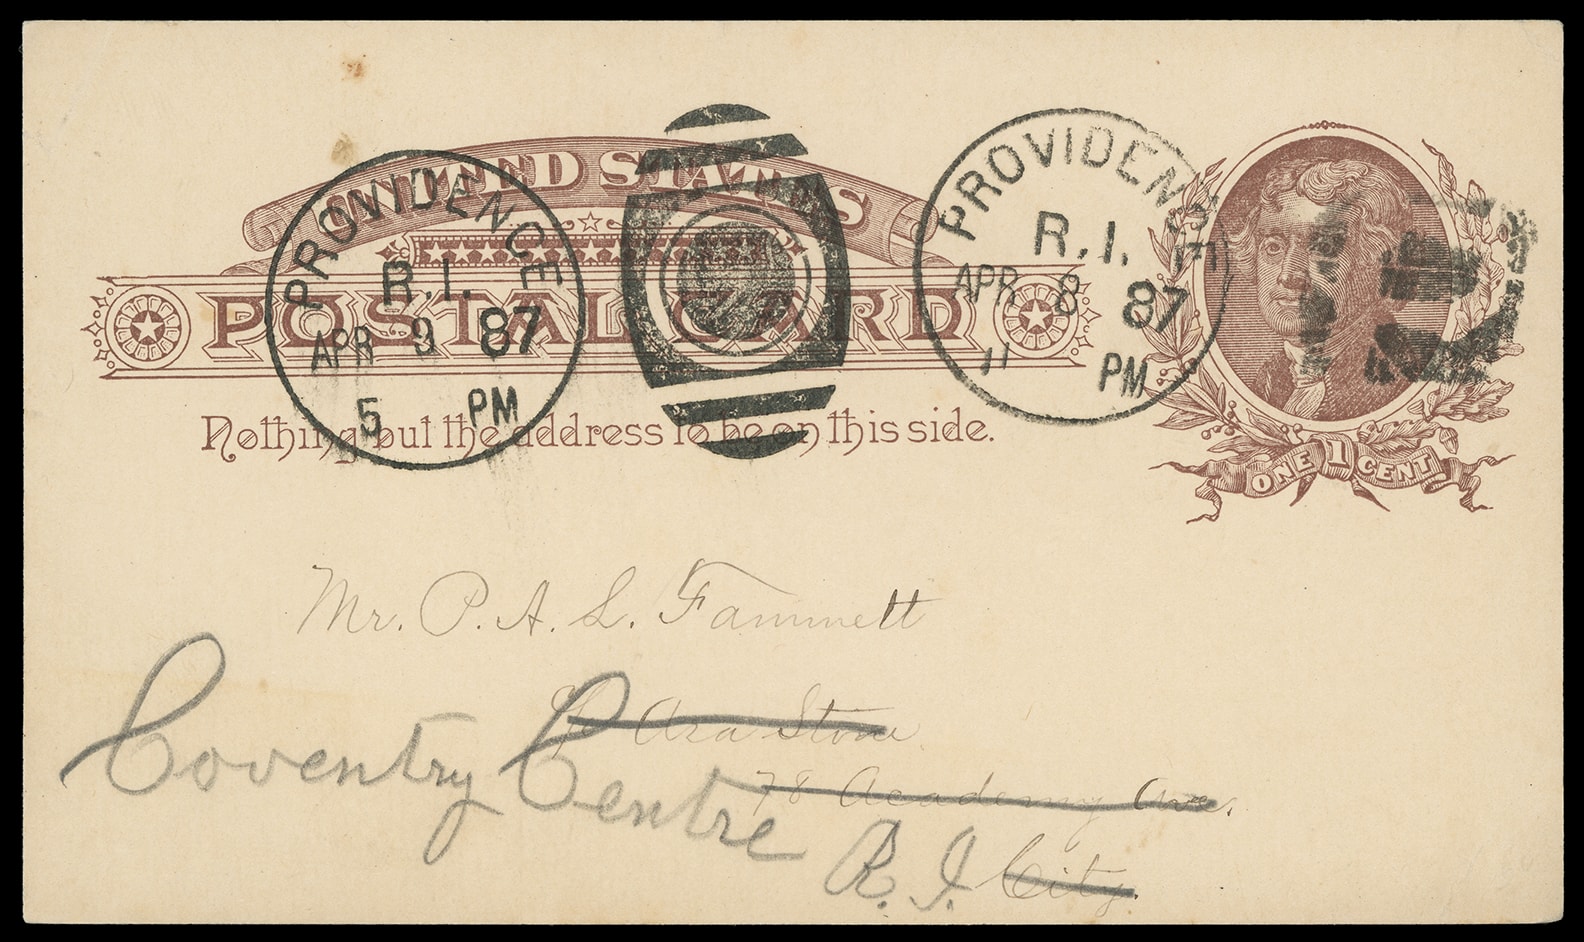 UNITED STATES
POSTAL CARD
Nothing but the address to be on this side.
PROVIDENCE
R.I.
APR 9 87
5 PM
PROVIDENCE
R.I.
APR 8 87
11 PM
ONE 1 CENT
Mr. P. A. L. Fammett
Ara Stone
78 Academy Ave.
City.
Coventry Centre
R. I.